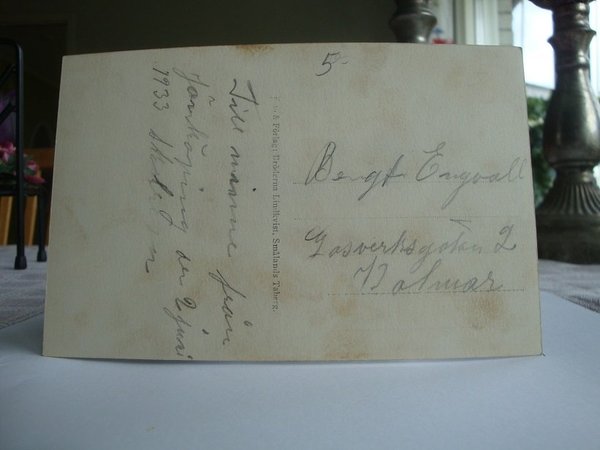 5-
Till minne från
Jönköping den 2 juni
1933
Foto & Förlag: Bröderna Lindkvist, Smålands Taberg.
Bengt Engvall
Gasverksgatan 2
Kalmar